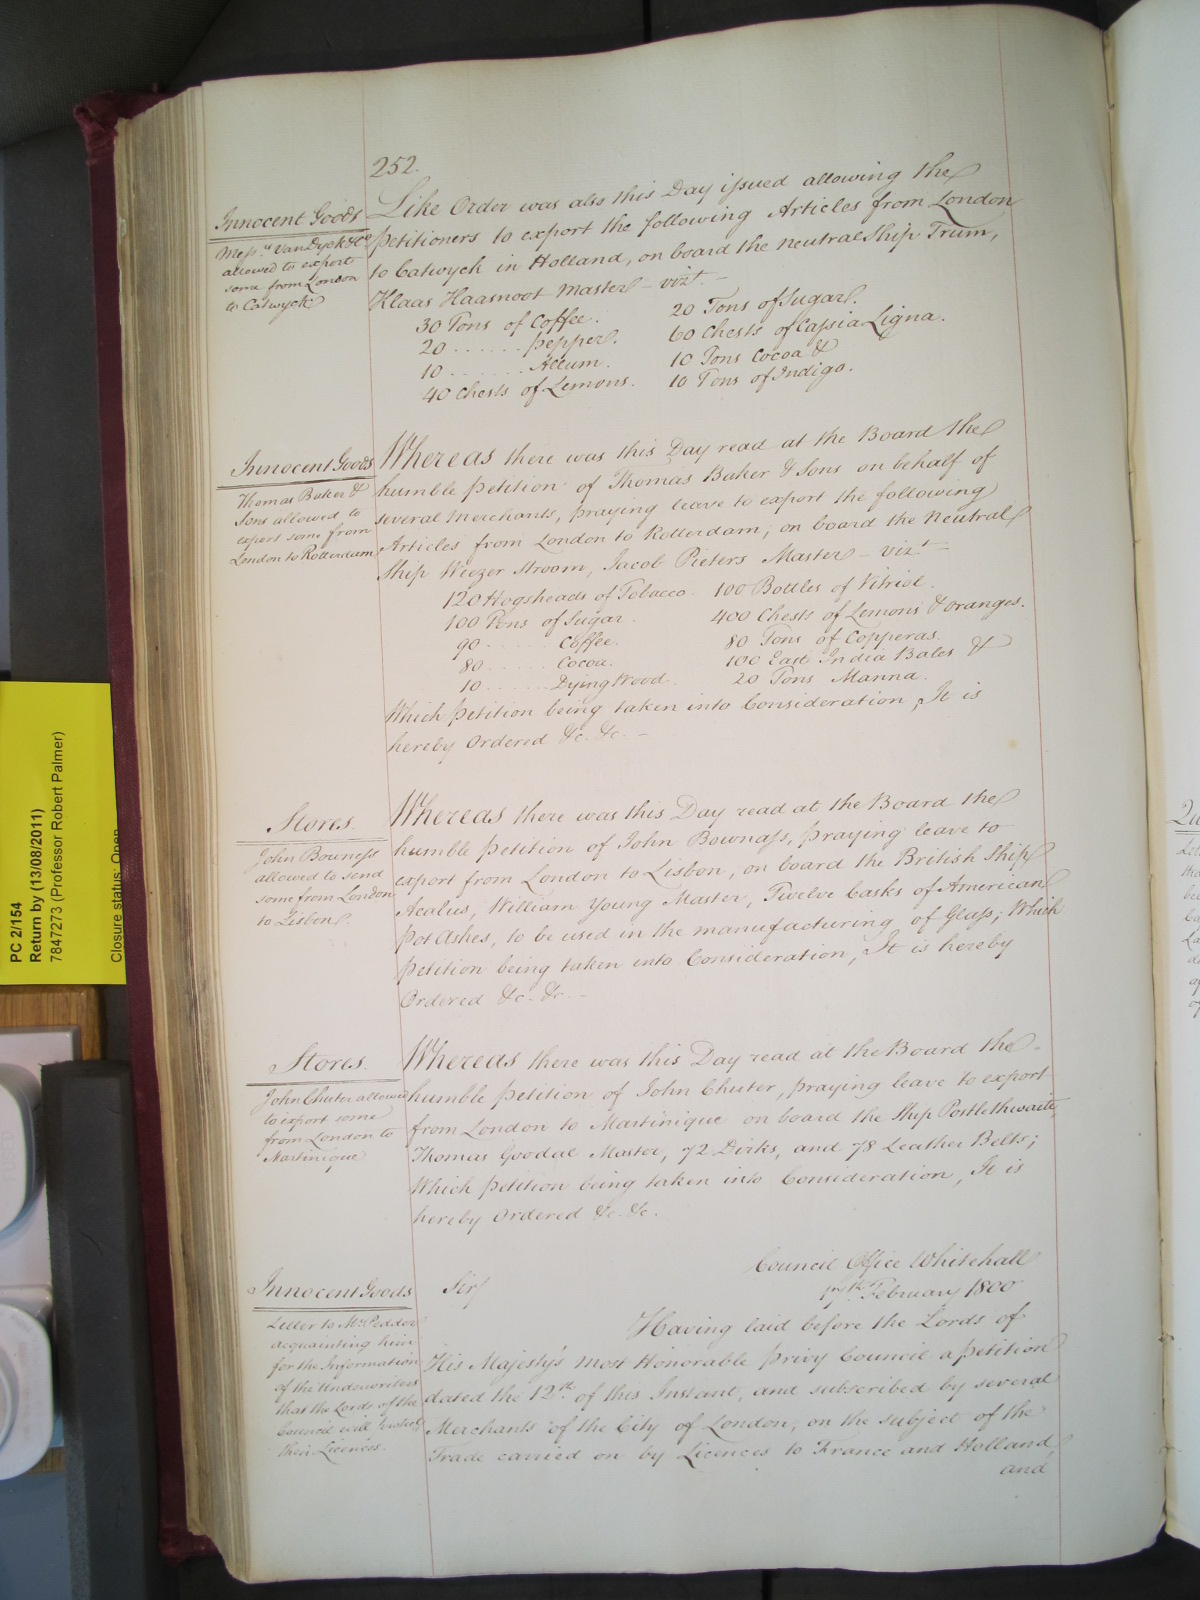 252.
Innocent Goods
Mess.rs Van Dyck & Co
allowed to export
some from London
to Catwyck
Like Order was also this Day issued allowing the
Petitioners to export the following Articles from London
to Catwyck in Holland, on board the neutral Ship Trum,
Klaas Haasnoot Master – vizt. –
30 Tons of Coffee.
20 ...... Pepper.
10 ...... Allum.
40 Chests of Lemons.
20 Tons of Sugar.
60 Chests of Cassia Ligna.
10 Tons Cocoa &
10 Tons of Indigo.
Innocent Goods
Thomas Baker &
Sons allowed to
export some from
London to Rotterdam
Whereas there was this Day read at the Board the
humble Petition of Thomas Baker & Sons on behalf of
several Merchants, praying leave to export the following
Articles from London to Rotterdam, on board the Neutral
Ship Weezer Stroom, Jacob Pieters Master – vizt –
120 Hogsheads of Tobacco.
100 Tons of Sugar.
90 ...... Coffee.
80 ...... Cocoa.
10 ...... Dying Wood.
100 Bottles of Vitriol.
400 Chests of Lemons & Oranges.
80 Tons of Copperas.
100 East India Bales &
20 Tons Manna.
Which Petition being taken into Consideration, It is
hereby Ordered &c. &c. –
Stores.
John Bowness
allowed to send
some from London
to Lisbon.
Whereas there was this Day read at the Board the
humble Petition of John Bownass, praying leave to
export from London to Lisbon, on board the British Ship
Acalus, William Young Master, Twelve Casks of American
Pot Ashes, to be used in the manufacturing of Glass; Which
Petition being taken into Consideration, It is hereby
Ordered &c. &c. –
Stores.
John Chuter allowed
to export some
from London to
Martinique
Whereas there was this Day read at the Board the
humble Petition of John Chuter, praying leave to export
from London to Martinique on board the Ship Postlethwaite,
Thomas Goodal Master, 72 Dirks, and 78 Leather Belts;
Which Petition being taken into Consideration, It is
hereby Ordered &c. &c.
Council Office Whitehall
17th February 1800
Innocent Goods
Letter to Mr. Pedder
acquainting him
for the Information
of the Underwriters
that the Lords of the
Council will protect
their Licences.
Sir,
Having laid before the Lords of
His Majesty's most Honorable Privy Council a Petition
dated the 12th. of this Instant, and subscribed by several
Merchants of the City of London, on the subject of the
Trade carried on by Licences to France and Holland,
and
PC 2/154
Return by (13/08/2011)
7847273 (Professor Robert Palmer)
Closure status: Open